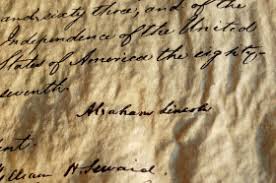 and sixty three, and of the
Independence of the United
States of America the eighty-
seventh.
Abraham Lincoln
William H. Seward.